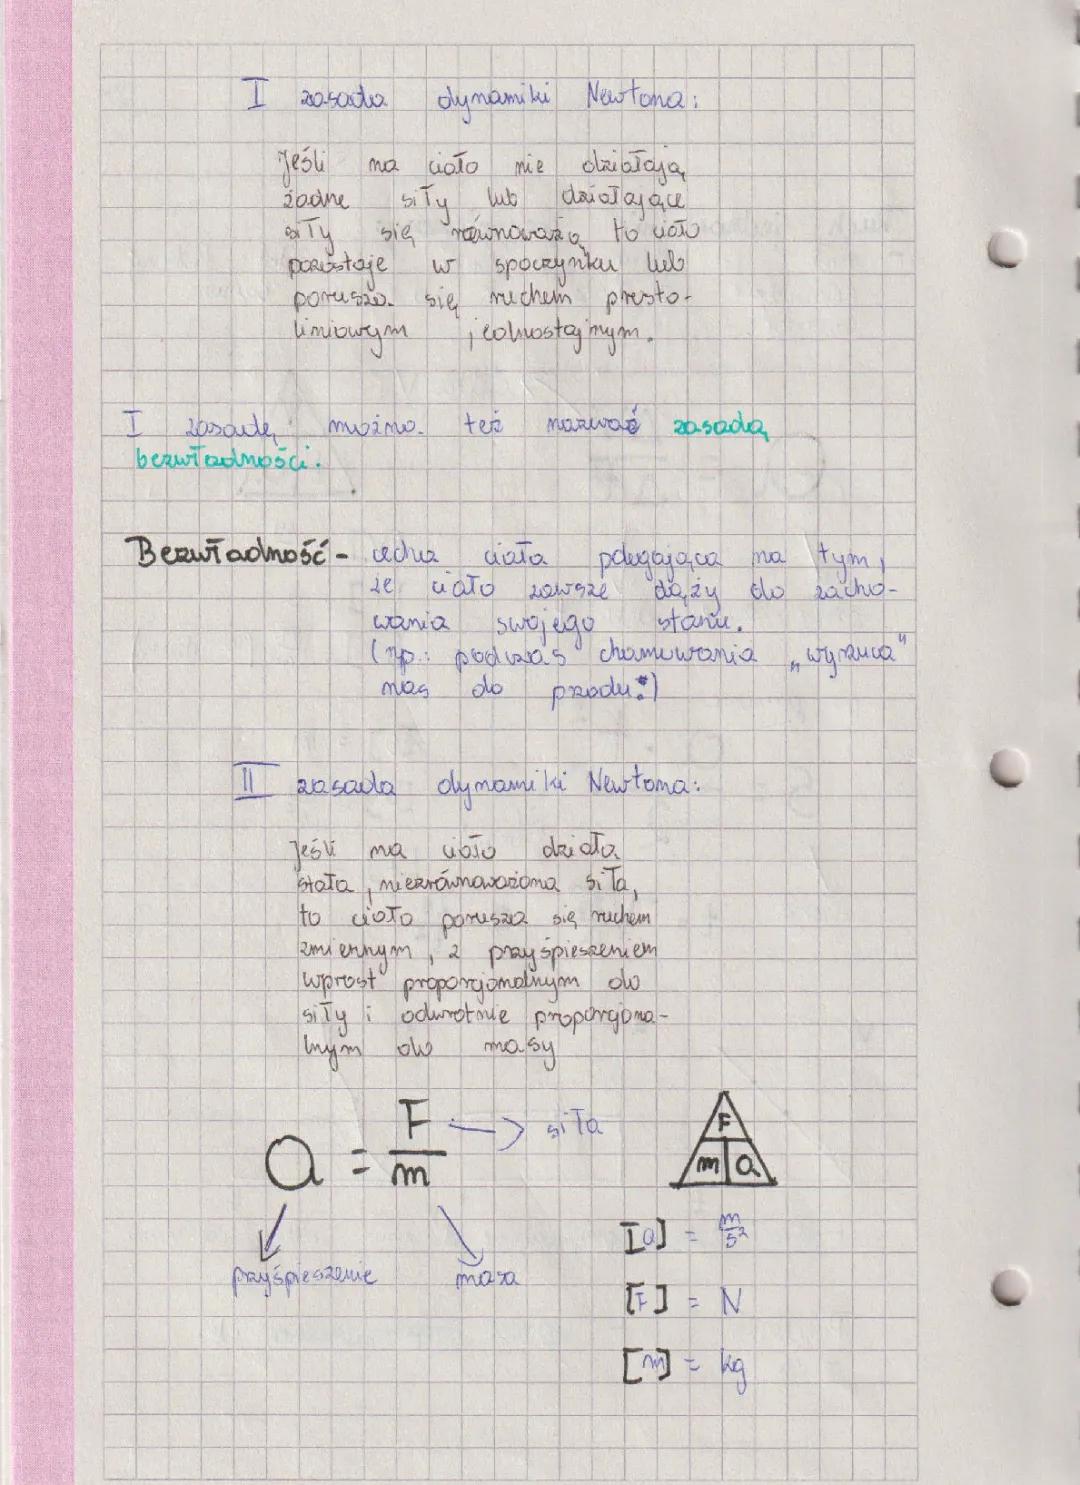 I zasada dynamiki Newtona:
Jeśli na ciało nie działają
żadne siły lub działające
siły się równoważą to ciało
pozostaje w spoczynku lub
porusza się ruchem prosto-
liniowym jednostajnym.
I zasadę można też nazwać zasadą
bezwładności.
Bezwładność - cecha ciała polegająca na tym,
że ciało zawsze dąży do zacho-
wania swojego stanu.
(np.: podczas chamowania „wyrzuca"
nas do przodu.)
II zasada dynamiki Newtona:
Jeśli na ciało działa
stała, niezrównoważona siła,
to ciało porusza się ruchem
zmiennym, z przyśpieszeniem
wprost proporcjonalnym do
siły i odwrotnie proporcjona-
lnym do masy
a = F/m → siła
przyśpieszenie masa
F
m a
[a] = m/s²
[F] = N
[m] = kg